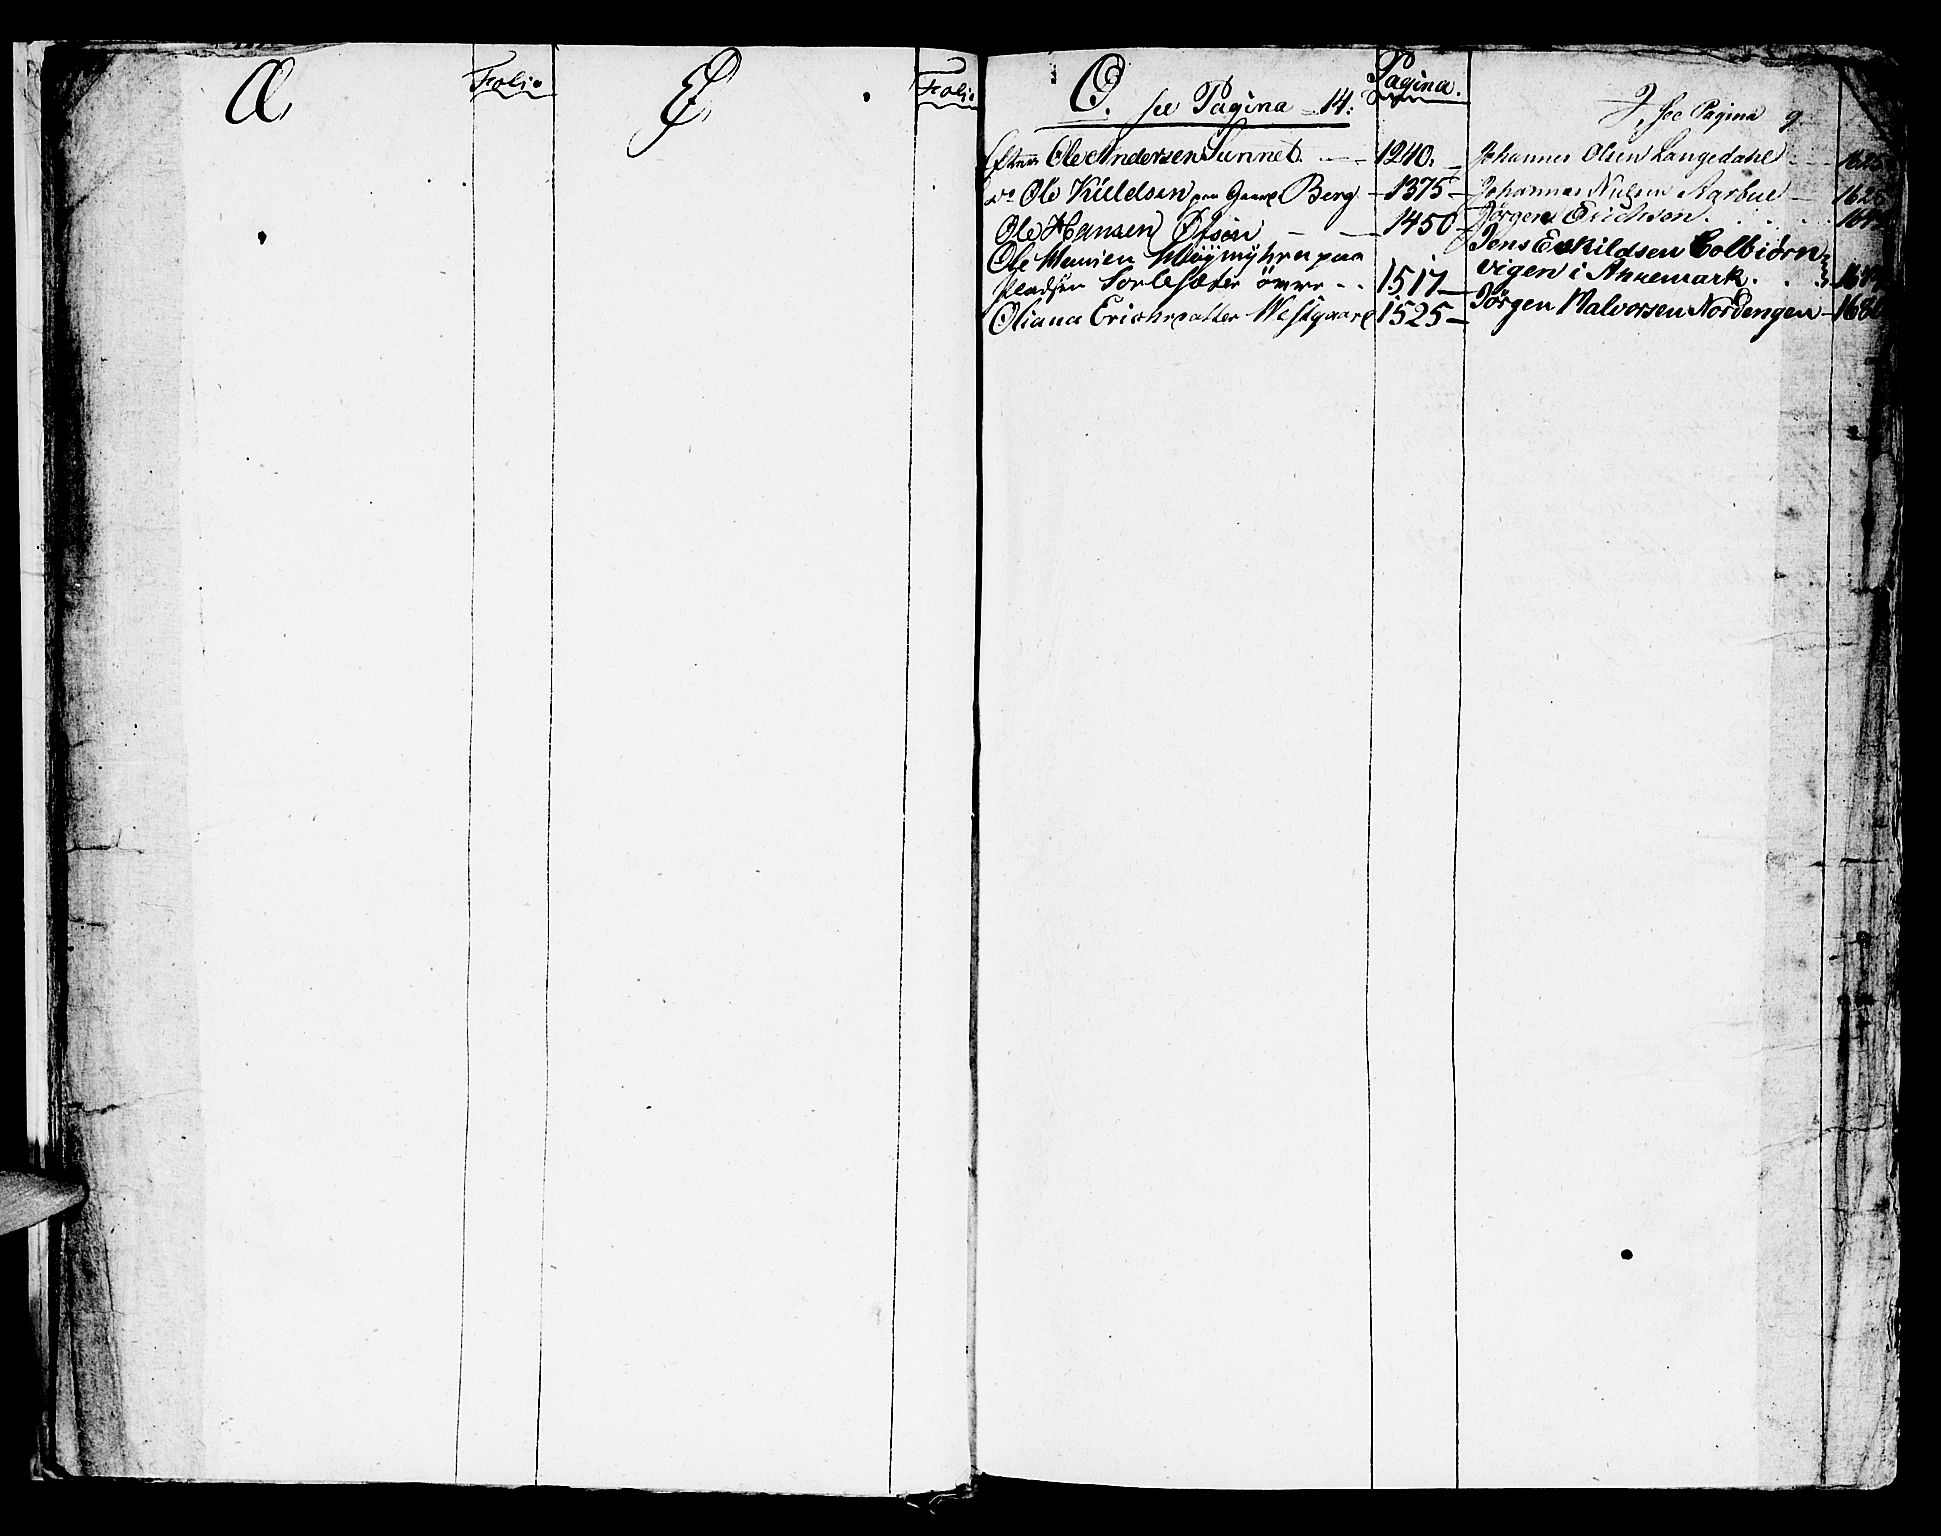 Æ
Folio
Ø
Folio
O. see Pagina 14:
Pagina.
Efter Ole Andersen Sunnet. 1240.
do Ole Kieldsen paa Gaard Berg 1375
Ole Hansen 1450
Ole paa
Pladsen øvre 1517
Oliana Erichsdatter Westgaard 1525
J, see Pagina 9
Johannes Olsen Langedahl 1625
Johannes Nielsen Aarbue 1625
Jørgen Erichsen.
Jens Eskildsen Colbiørn-
vigen i Annemark.
Jørgen Halvorsen Nordengen